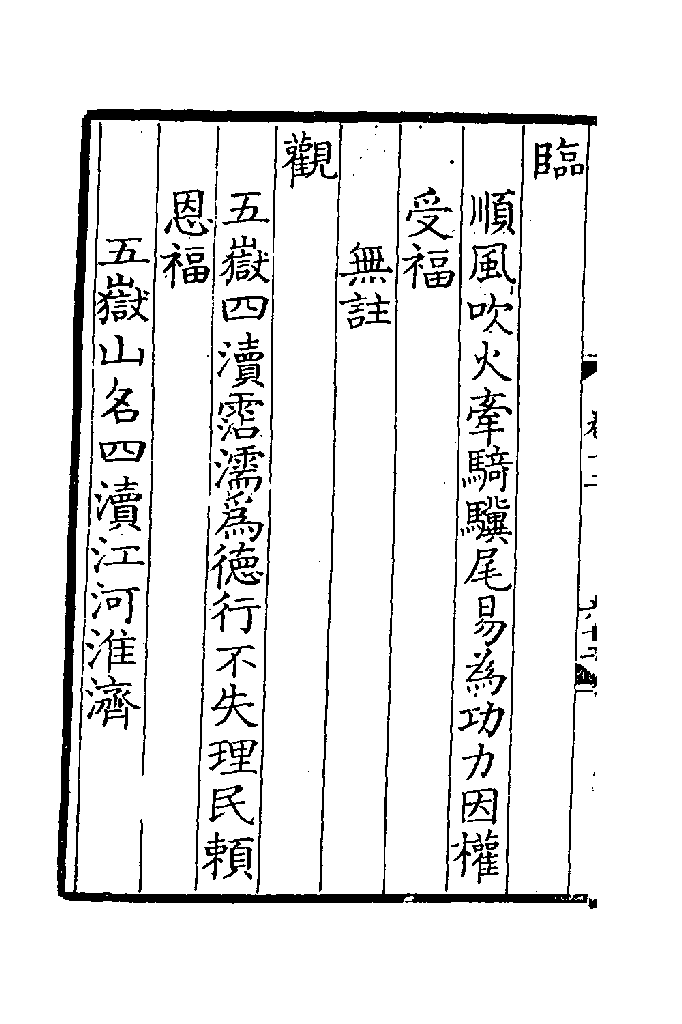 臨
順風吹火牽騎驥尾易為功力因權
受福
無註
觀
五嶽四瀆霑濡爲德行不失理民賴
恩福
五嶽山名四瀆江河淮濟